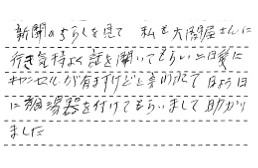 新聞のちらしを見て 私も大阪屋さんに
行き気持よく話を聞いてもらい 二日後に
キャンセルが有ますけどと 日よう日
に 湯器を付けてもらいまして 助かり
ました